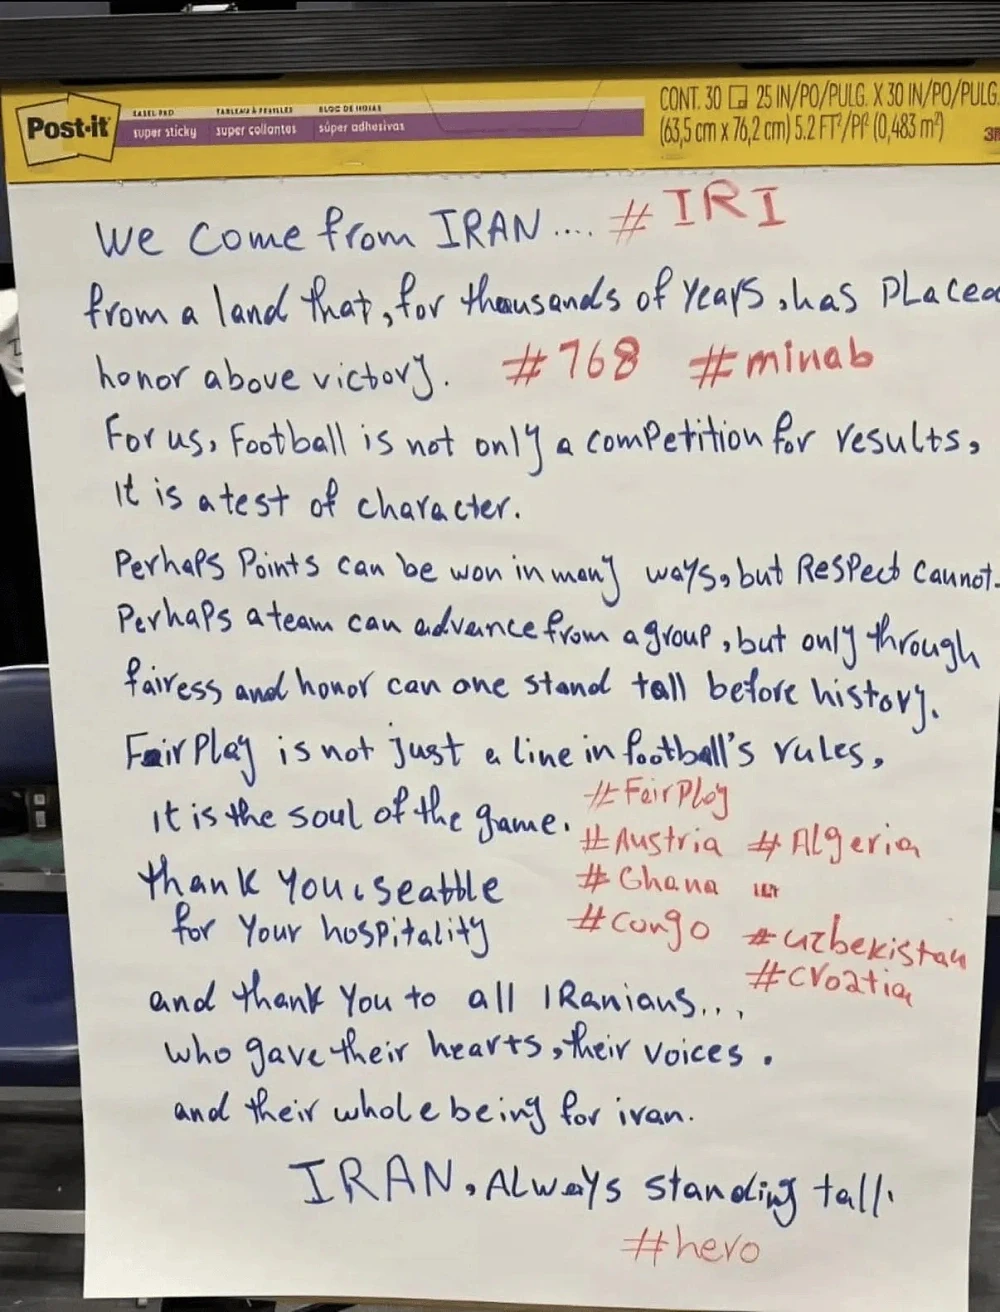 Post-it
EASEL PAD TABLEAU À FEUILLES BLOC DE HOJAS
super sticky super collantes súper adhesivas
CONT. 30 25 IN/PO/PULG. X 30 IN/PO/PULG.
(63,5 cm x 76,2 cm) 5.2 FT²/PI² (0,483 m²)
3M
We come from IRAN .... #IRI
from a land that, for thousands of years, has PLaced
honor above victory. #768 #minab
For us, Football is not only a competition for results,
it is a test of character.
Perhaps Points can be won in many ways, but Respect cannot.
Perhaps a team can advance from a group, but only through
fairess and honor can one stand tall before history.
Fair Play is not just a line in football's rules,
it is the soul of the game. #FairPlay
#Austria #Algeria
thank you, seattle #Ghana
for your hospitality #congo #uzbekistan
#croatia
and thank you to all IRanians...,
who gave their hearts, their voices.
and their whole being for iran.
IRAN, Always standing tall.
#hero